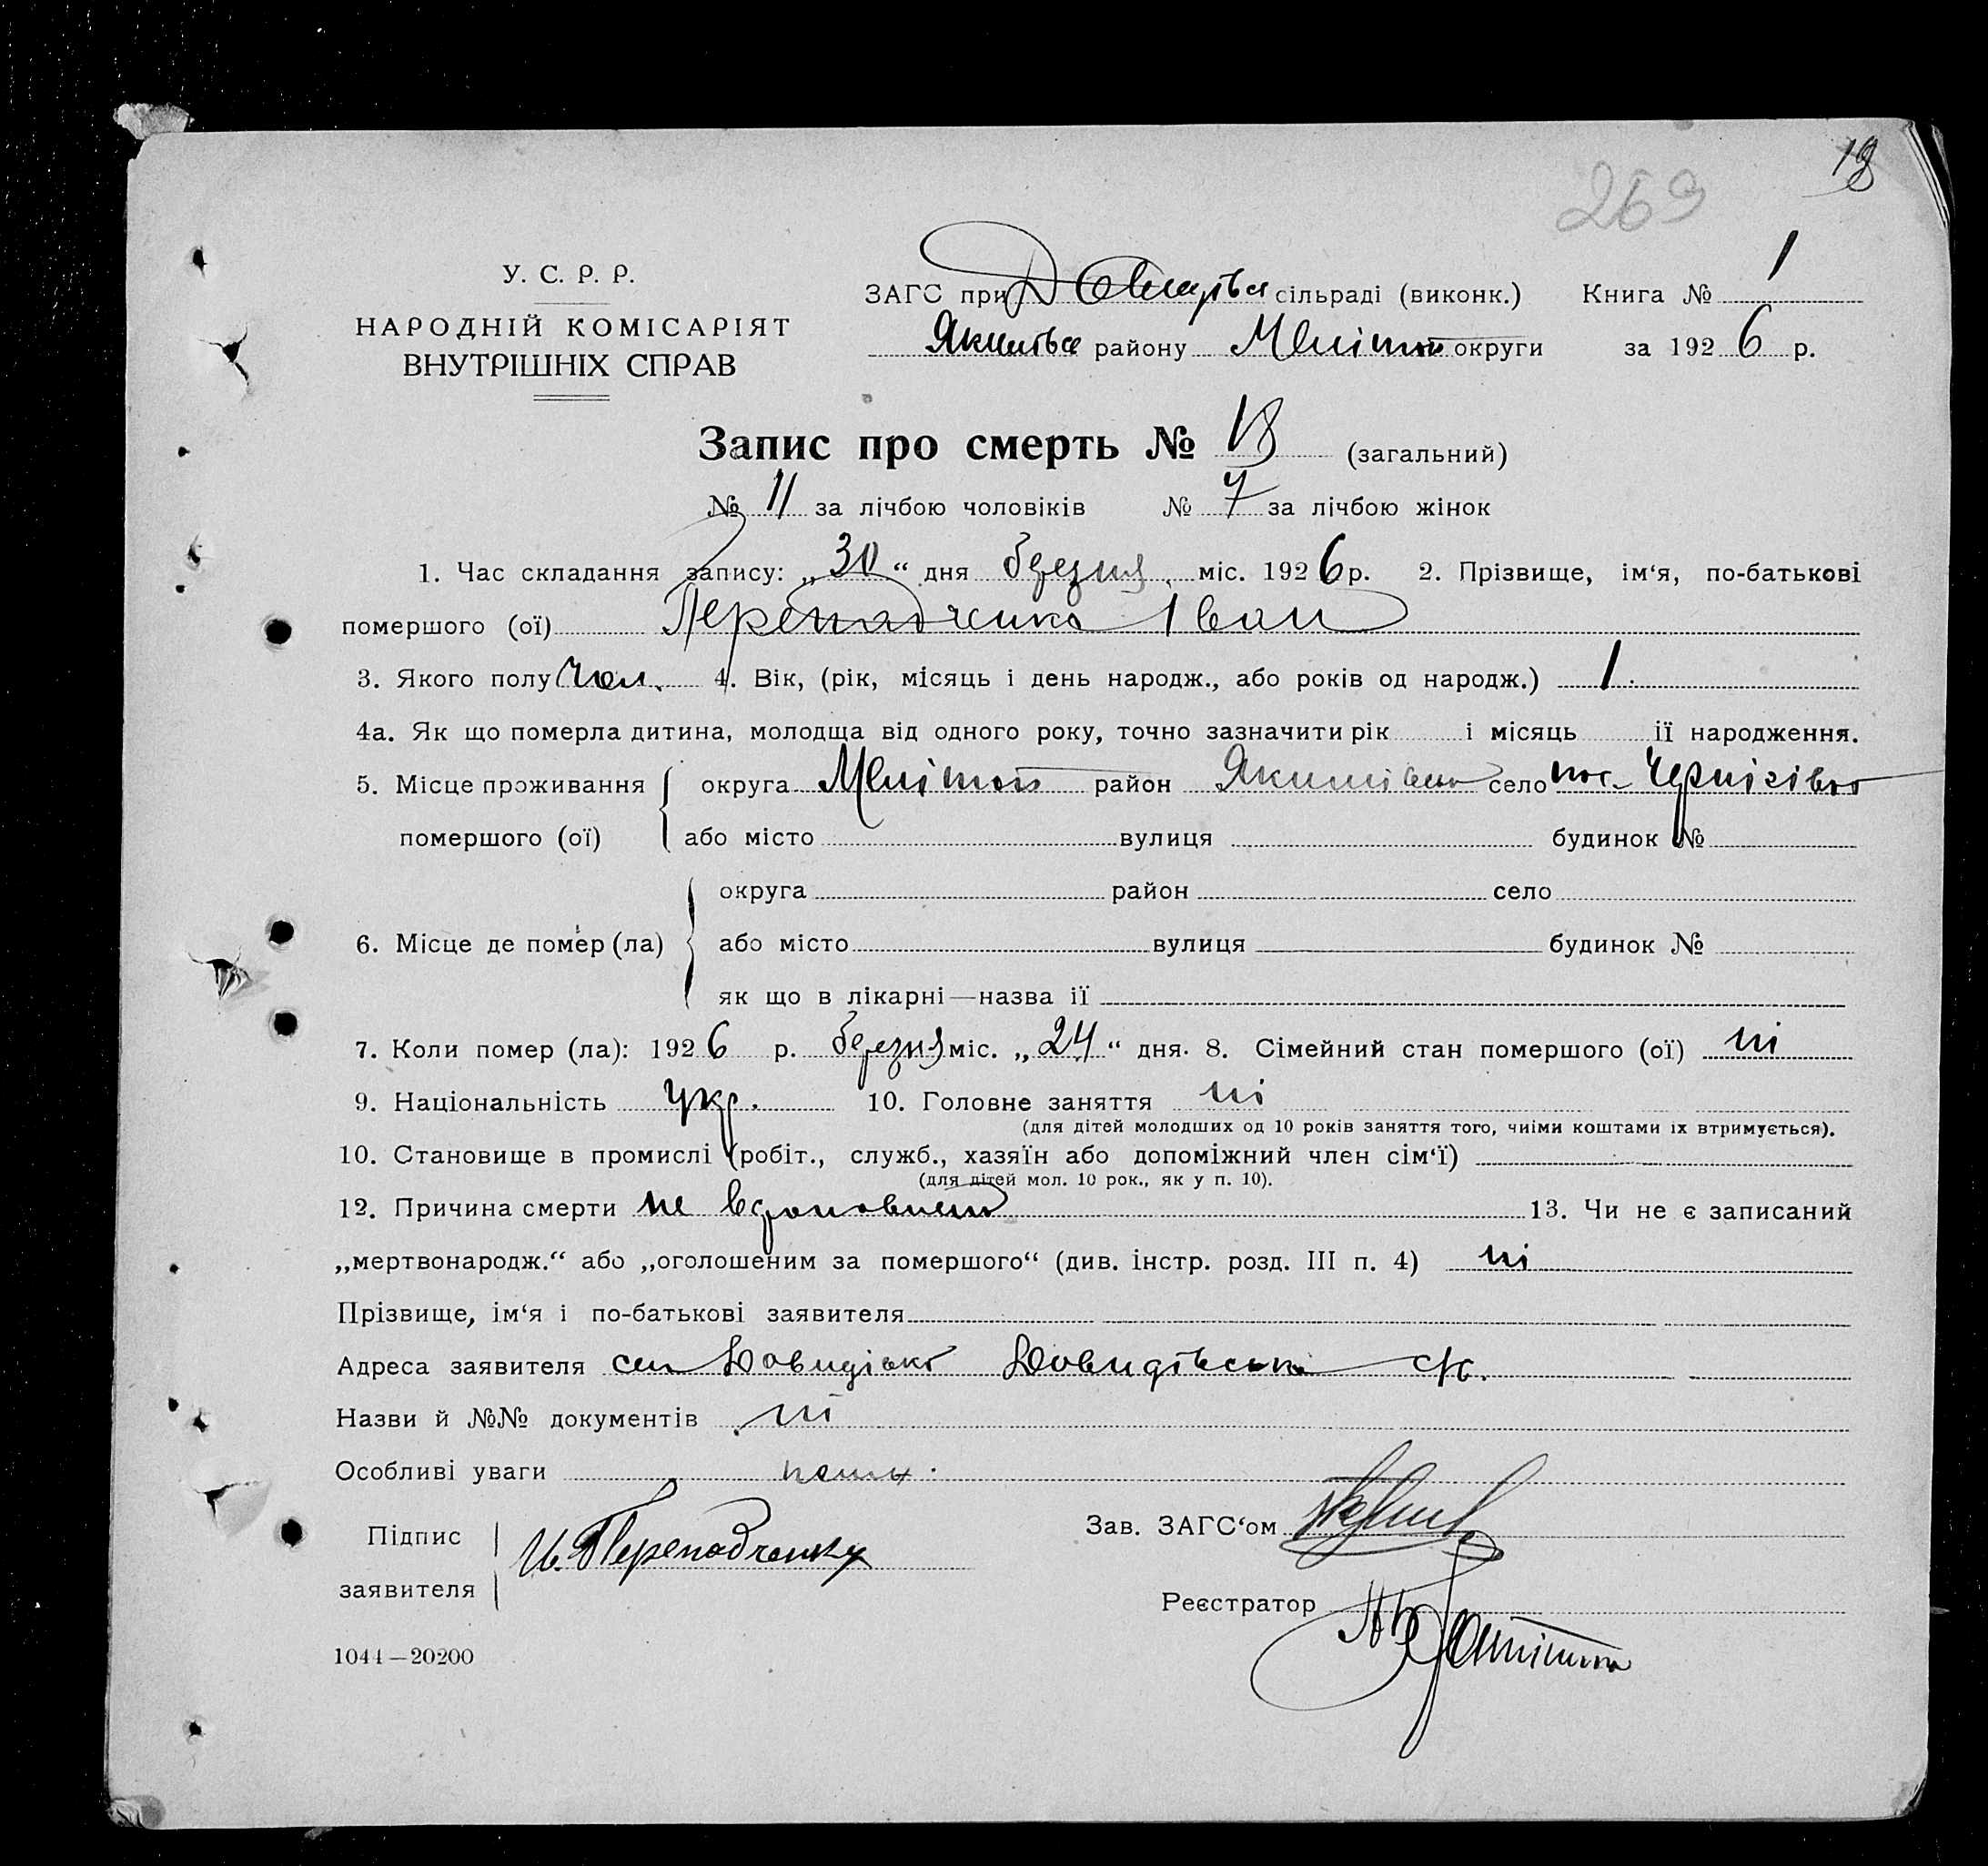 18
269
У. С. Р. Р.
НАРОДНІЙ КОМІСАРІЯТ
ВНУТРІШНІХ СПРАВ
ЗАГС при сільраді (виконк.) Книга № 1
району Меліт округи за 1926 р.
Запис про смерть № 18 (загальний)
№ 11 за лічбою чоловіків № 7 за лічбою жінок
1. Час складання запису: „30“ дня березня міс. 1926 р. 2. Прізвище, ім‘я, по-батькові
помершого (ої) Перепадченко Іван
3. Якого полу Чол. 4. Вік, (рік, місяць і день народж., або років од народж.) 1.
4а. Як що померла дитина, молодща від одного року, точно зазначити рік і місяць ії народження.
5. Місце проживання округа Мелітоп район Якимівськ село пос. Чернігівка
помершого (ої) або місто вулиця будинок №
округа район село
6. Місце де помер (ла) або місто вулиця будинок №
як що в лікарні—назва ії
7. Коли помер (ла): 1926 р. березня міс. „24“ дня. 8. Сімейний стан помершого (ої) ні
9. Національність укр. 10. Головне заняття ні
(для дітей молодших од 10 років заняття того, чиїми коштами їх втримується).
10. Становище в промислі (робіт., служб., хазяїн або допоміжний член сім‘ї)
(для дітей мол. 10 рок., як у п. 10).
12. Причина смерти не 13. Чи не є записаний
„мертвонародж.“ або „оголошеним за помершого“ (див. інстр. розд. III п. 4) ні
Прізвище, ім‘я і по-батькові заявителя
Адреса заявителя Довидівська с/р.
Назви й №№ документів ні
Особливі уваги
Підпис И. Перепадченку Зав. ЗАГС‘ом
заявителя
Реєстратор
1044—20200